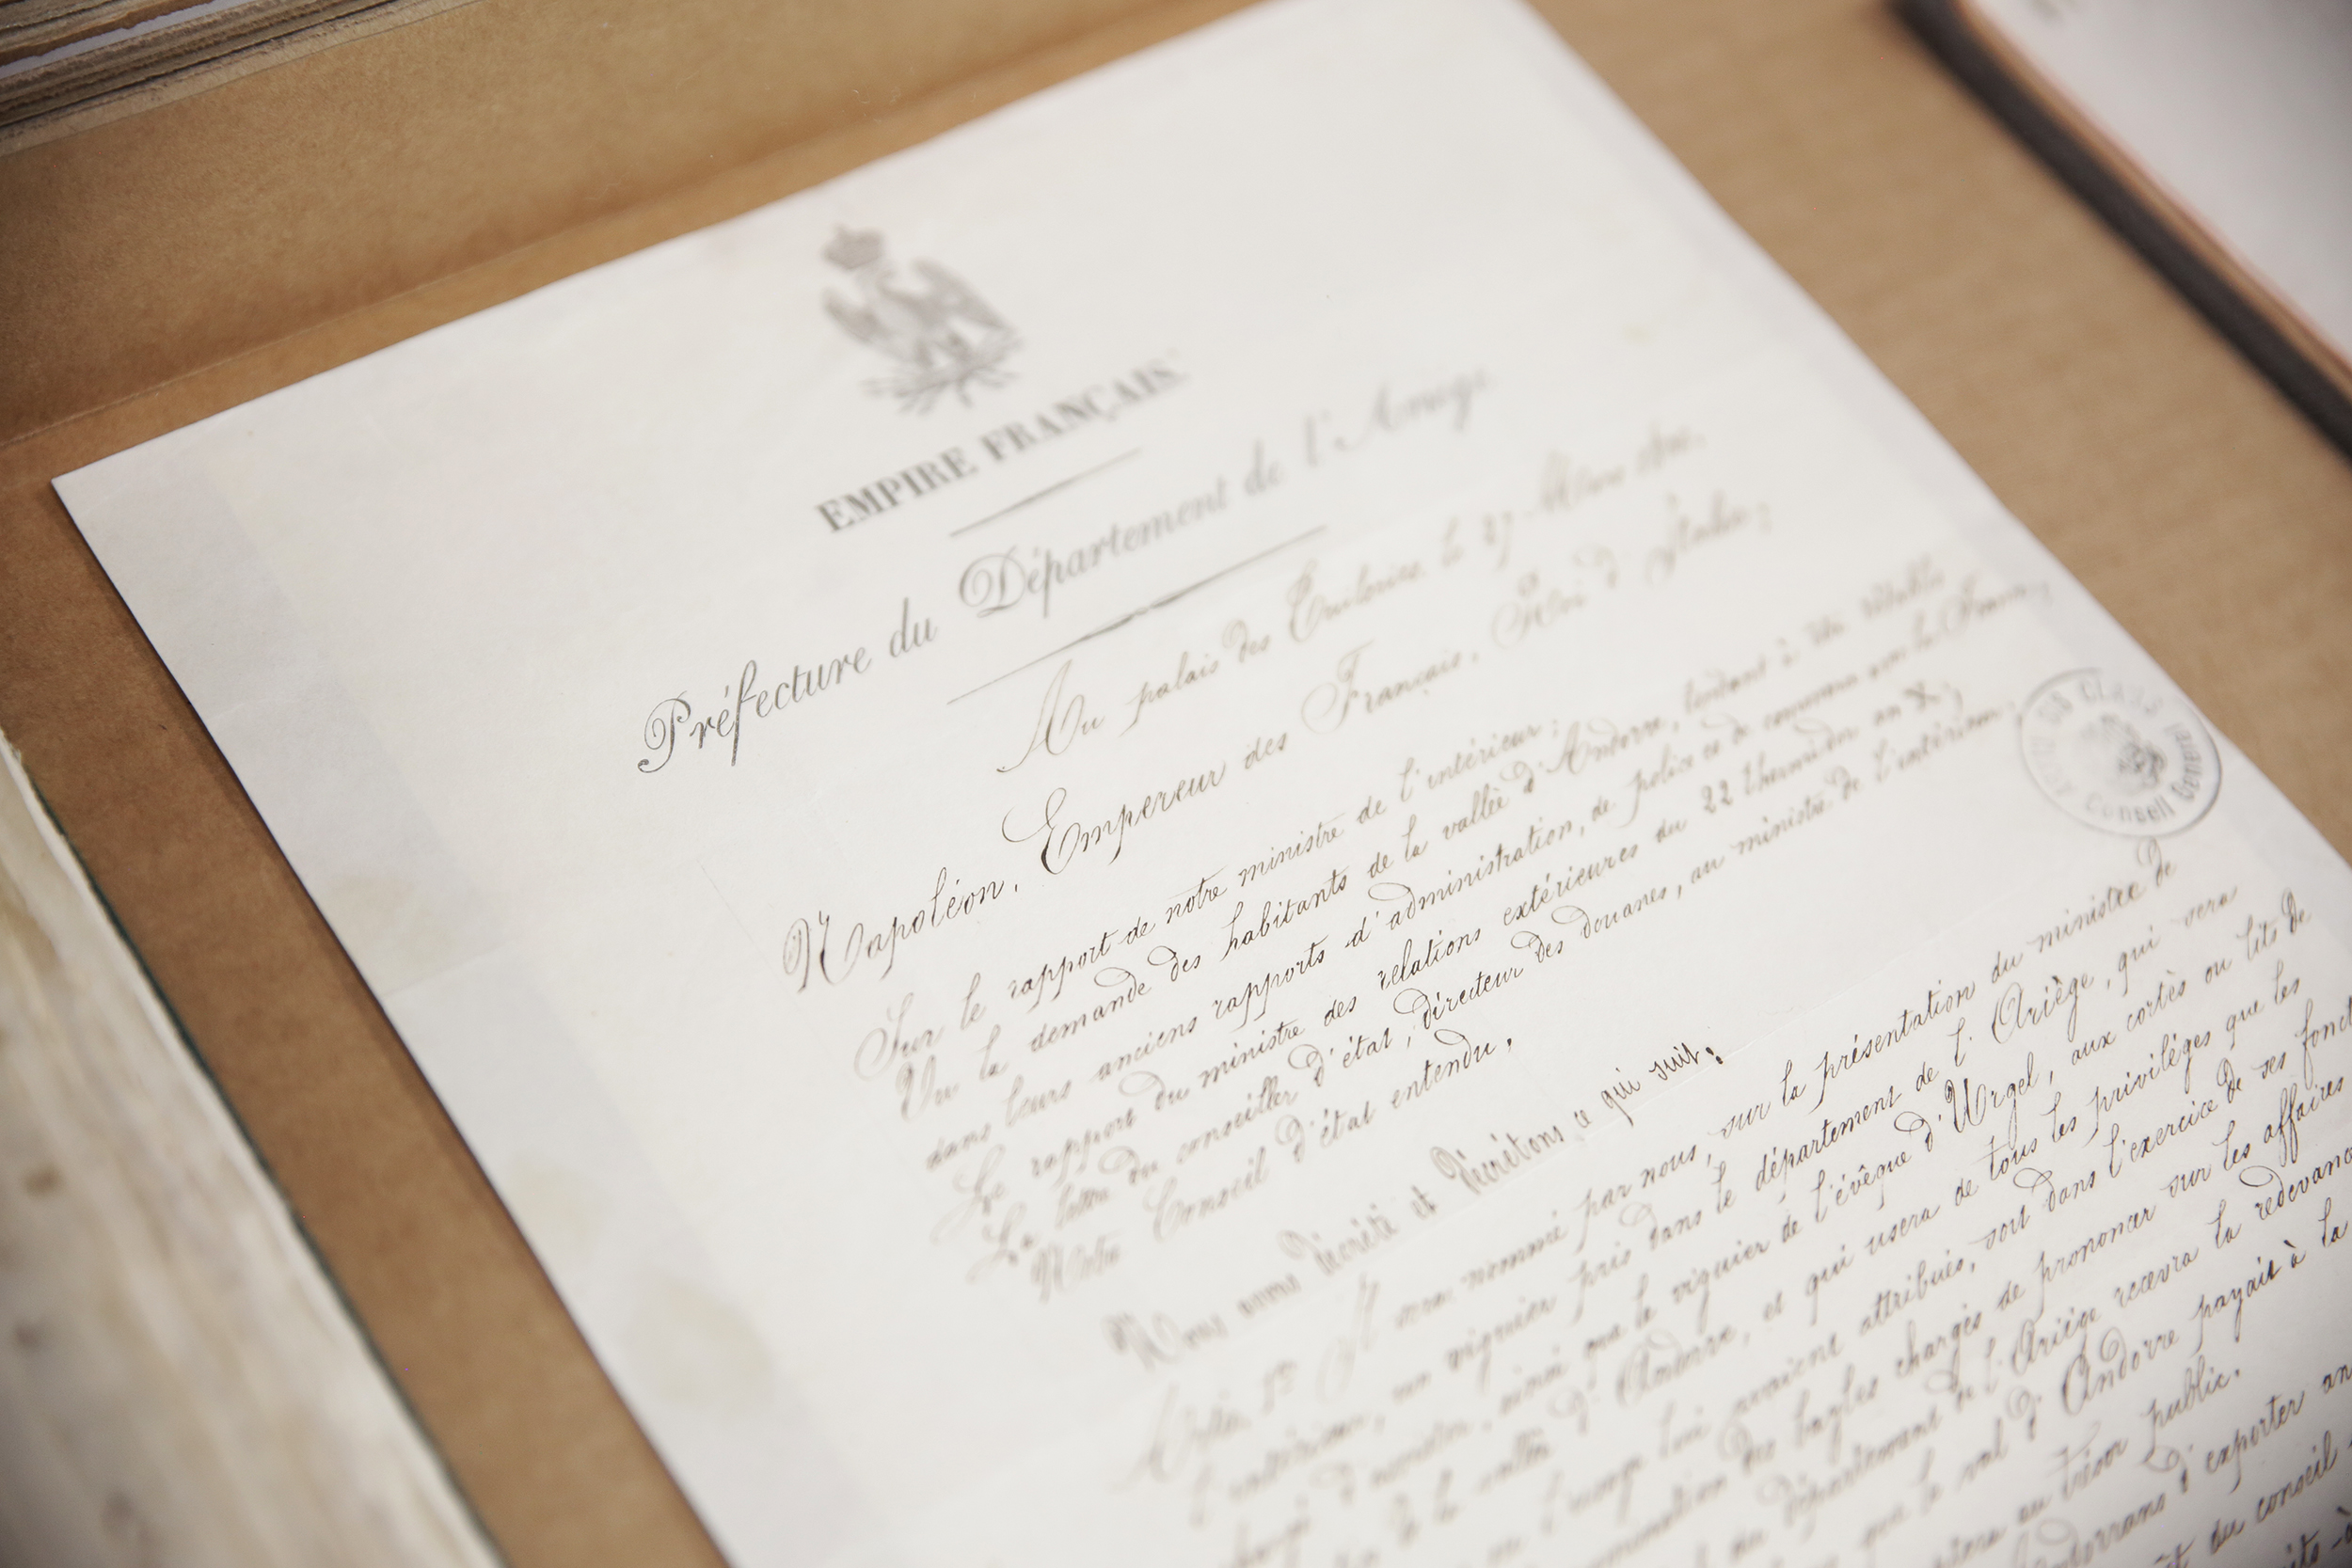 EMPIRE FRANÇAIS
Préfecture du Département de l'Ariège
Au palais des Tuileries le 27 Mars
Napoléon, Empereur des Français, Roi d'Italie;
Sur le rapport de notre ministre de l'intérieur;
Vu la demande des habitants de la vallée d'Andorre, tendant à être rétablis
dans leurs anciens rapports d'administration, de police et de commerce avec la France;
Le rapport du ministre des relations extérieures du 22 thermidor an X;
La lettre du conseiller d'état, directeur des douanes, au ministre de l'intérieur.
Notre Conseil d'état entendu,
Nous avons décrété et décrétons ce qui suit:
Il sera nommé par nous, sur la présentation du ministre de
l'intérieur, un viguier pris dans le département de l'Ariège, qui sera
ainsi que le viguier de l'évêque d'Urgel, aux cortès ou lits de
de la vallée d'Andorre, et qui usera de tous les priviléges que les
ou l'usage lui avaient attribués, soit dans l'exercice de ses
des bayles chargés de prononcer sur les affaires
du département de l'Ariège recevra la
que le val d'Andorre payait à la
au trésor public.
d'exporter
du conseil
Conseil General